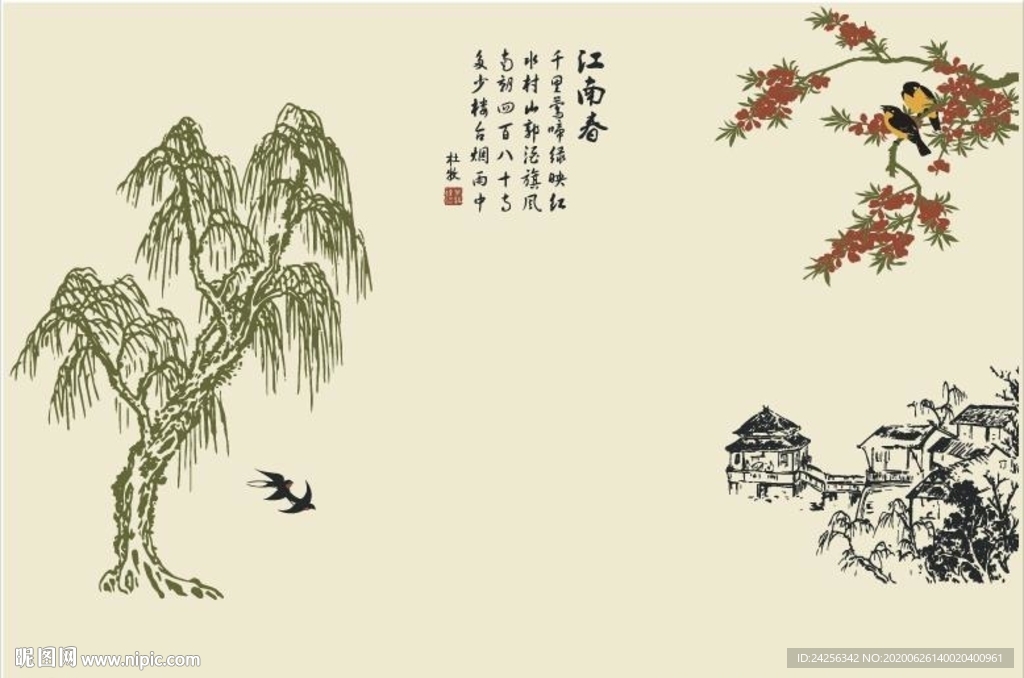 江南春
千里莺啼绿映红
水村山郭酒旗风
南朝四百八十寺
多少楼台烟雨中
杜牧
昵图网 www.nipic.com
ID:24256342 NO:20200626140020400961